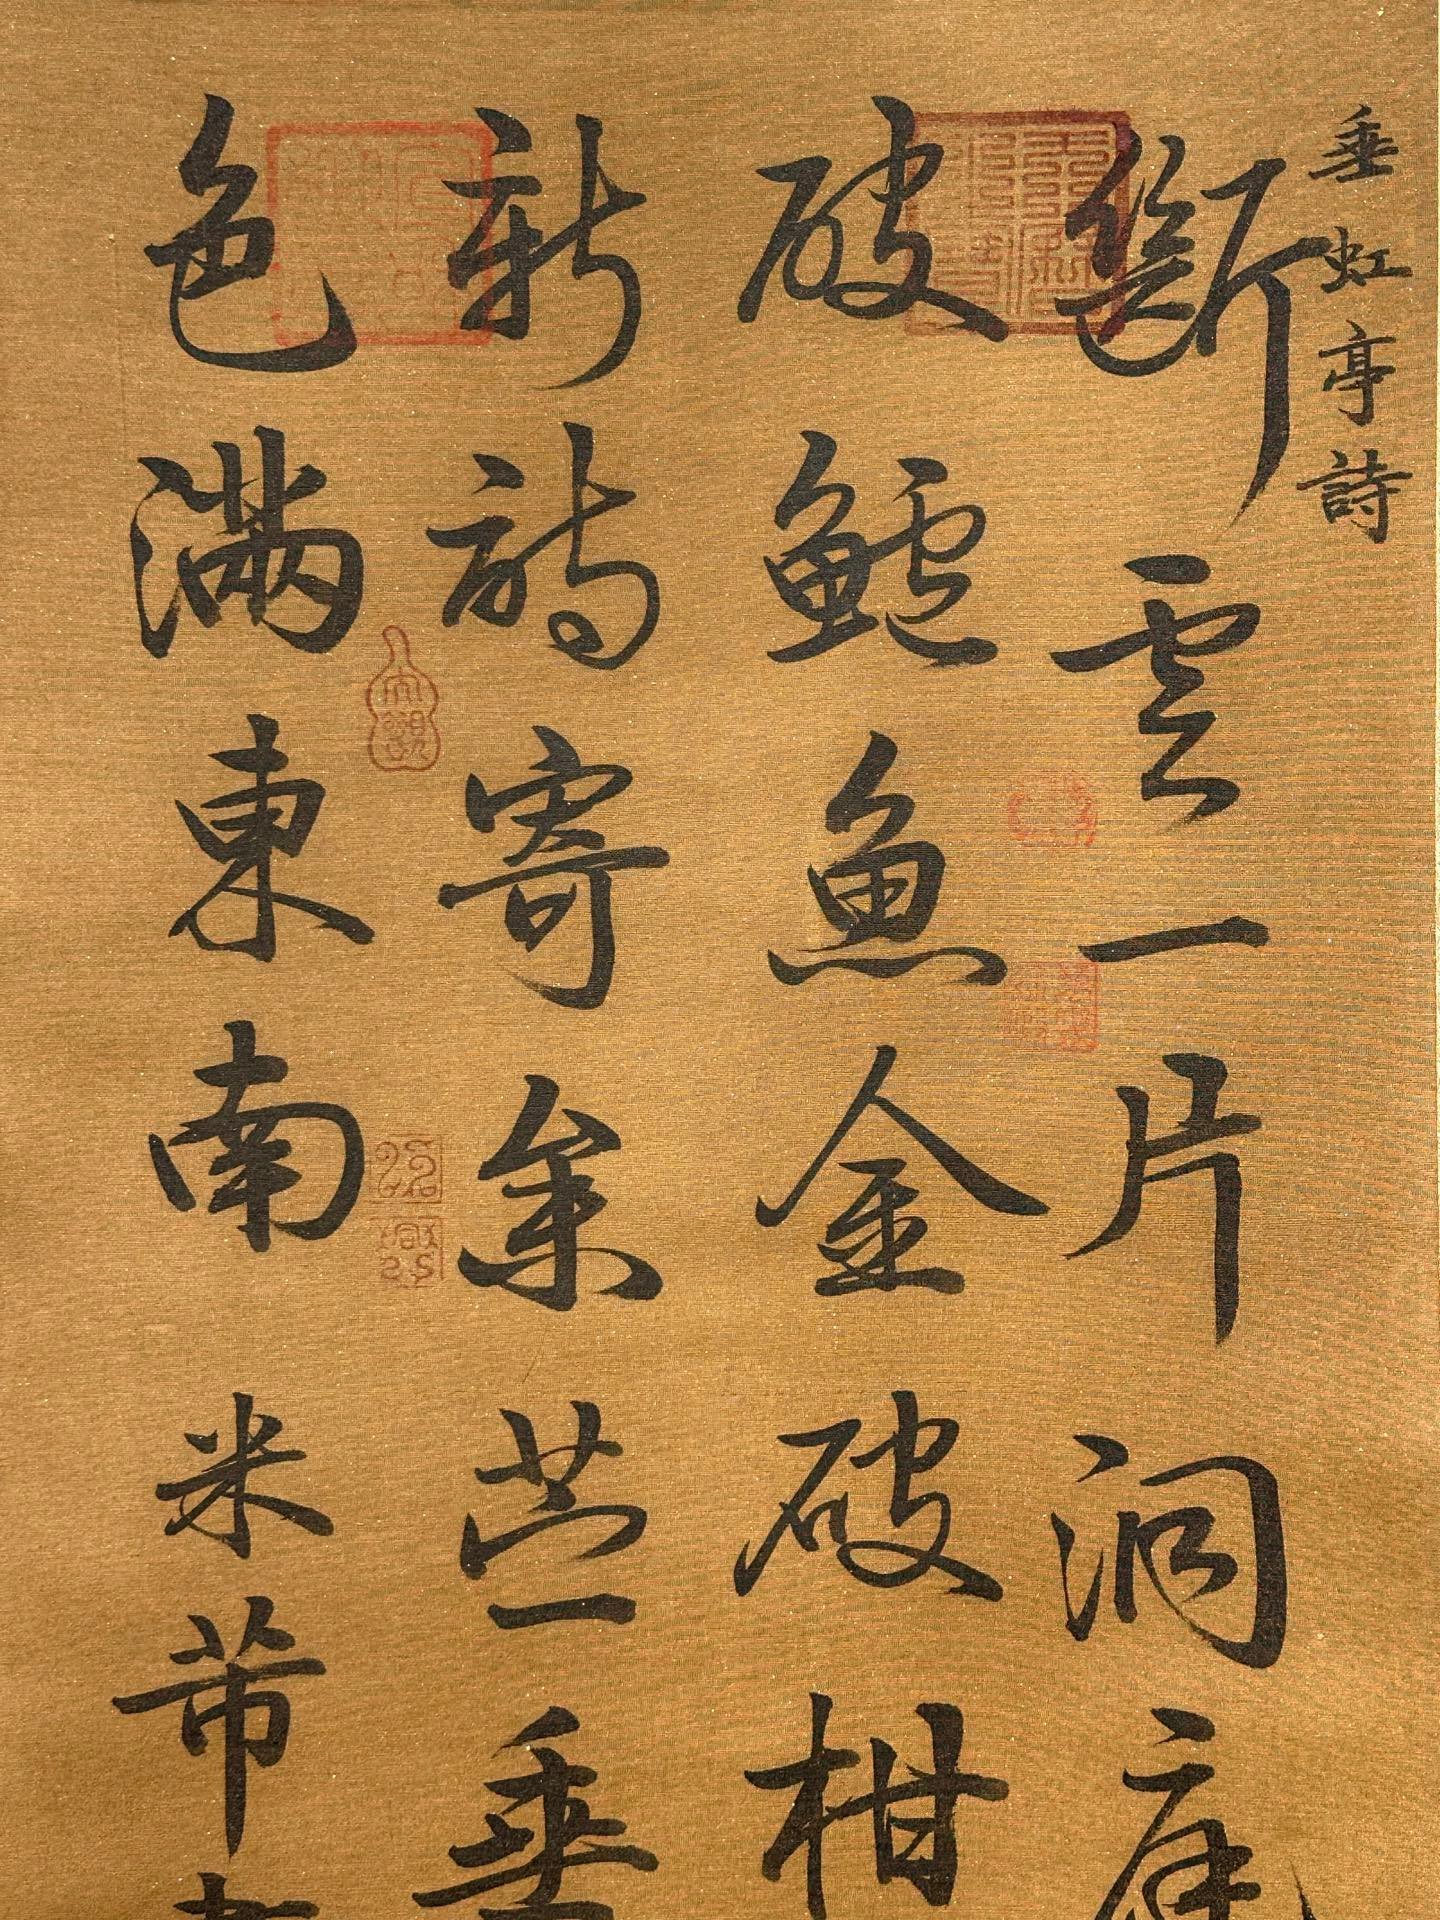 垂虹亭詩
斷雲一片洞庭
破鱸魚金破柑
新詩寄桑苎垂
色滿東南米芾